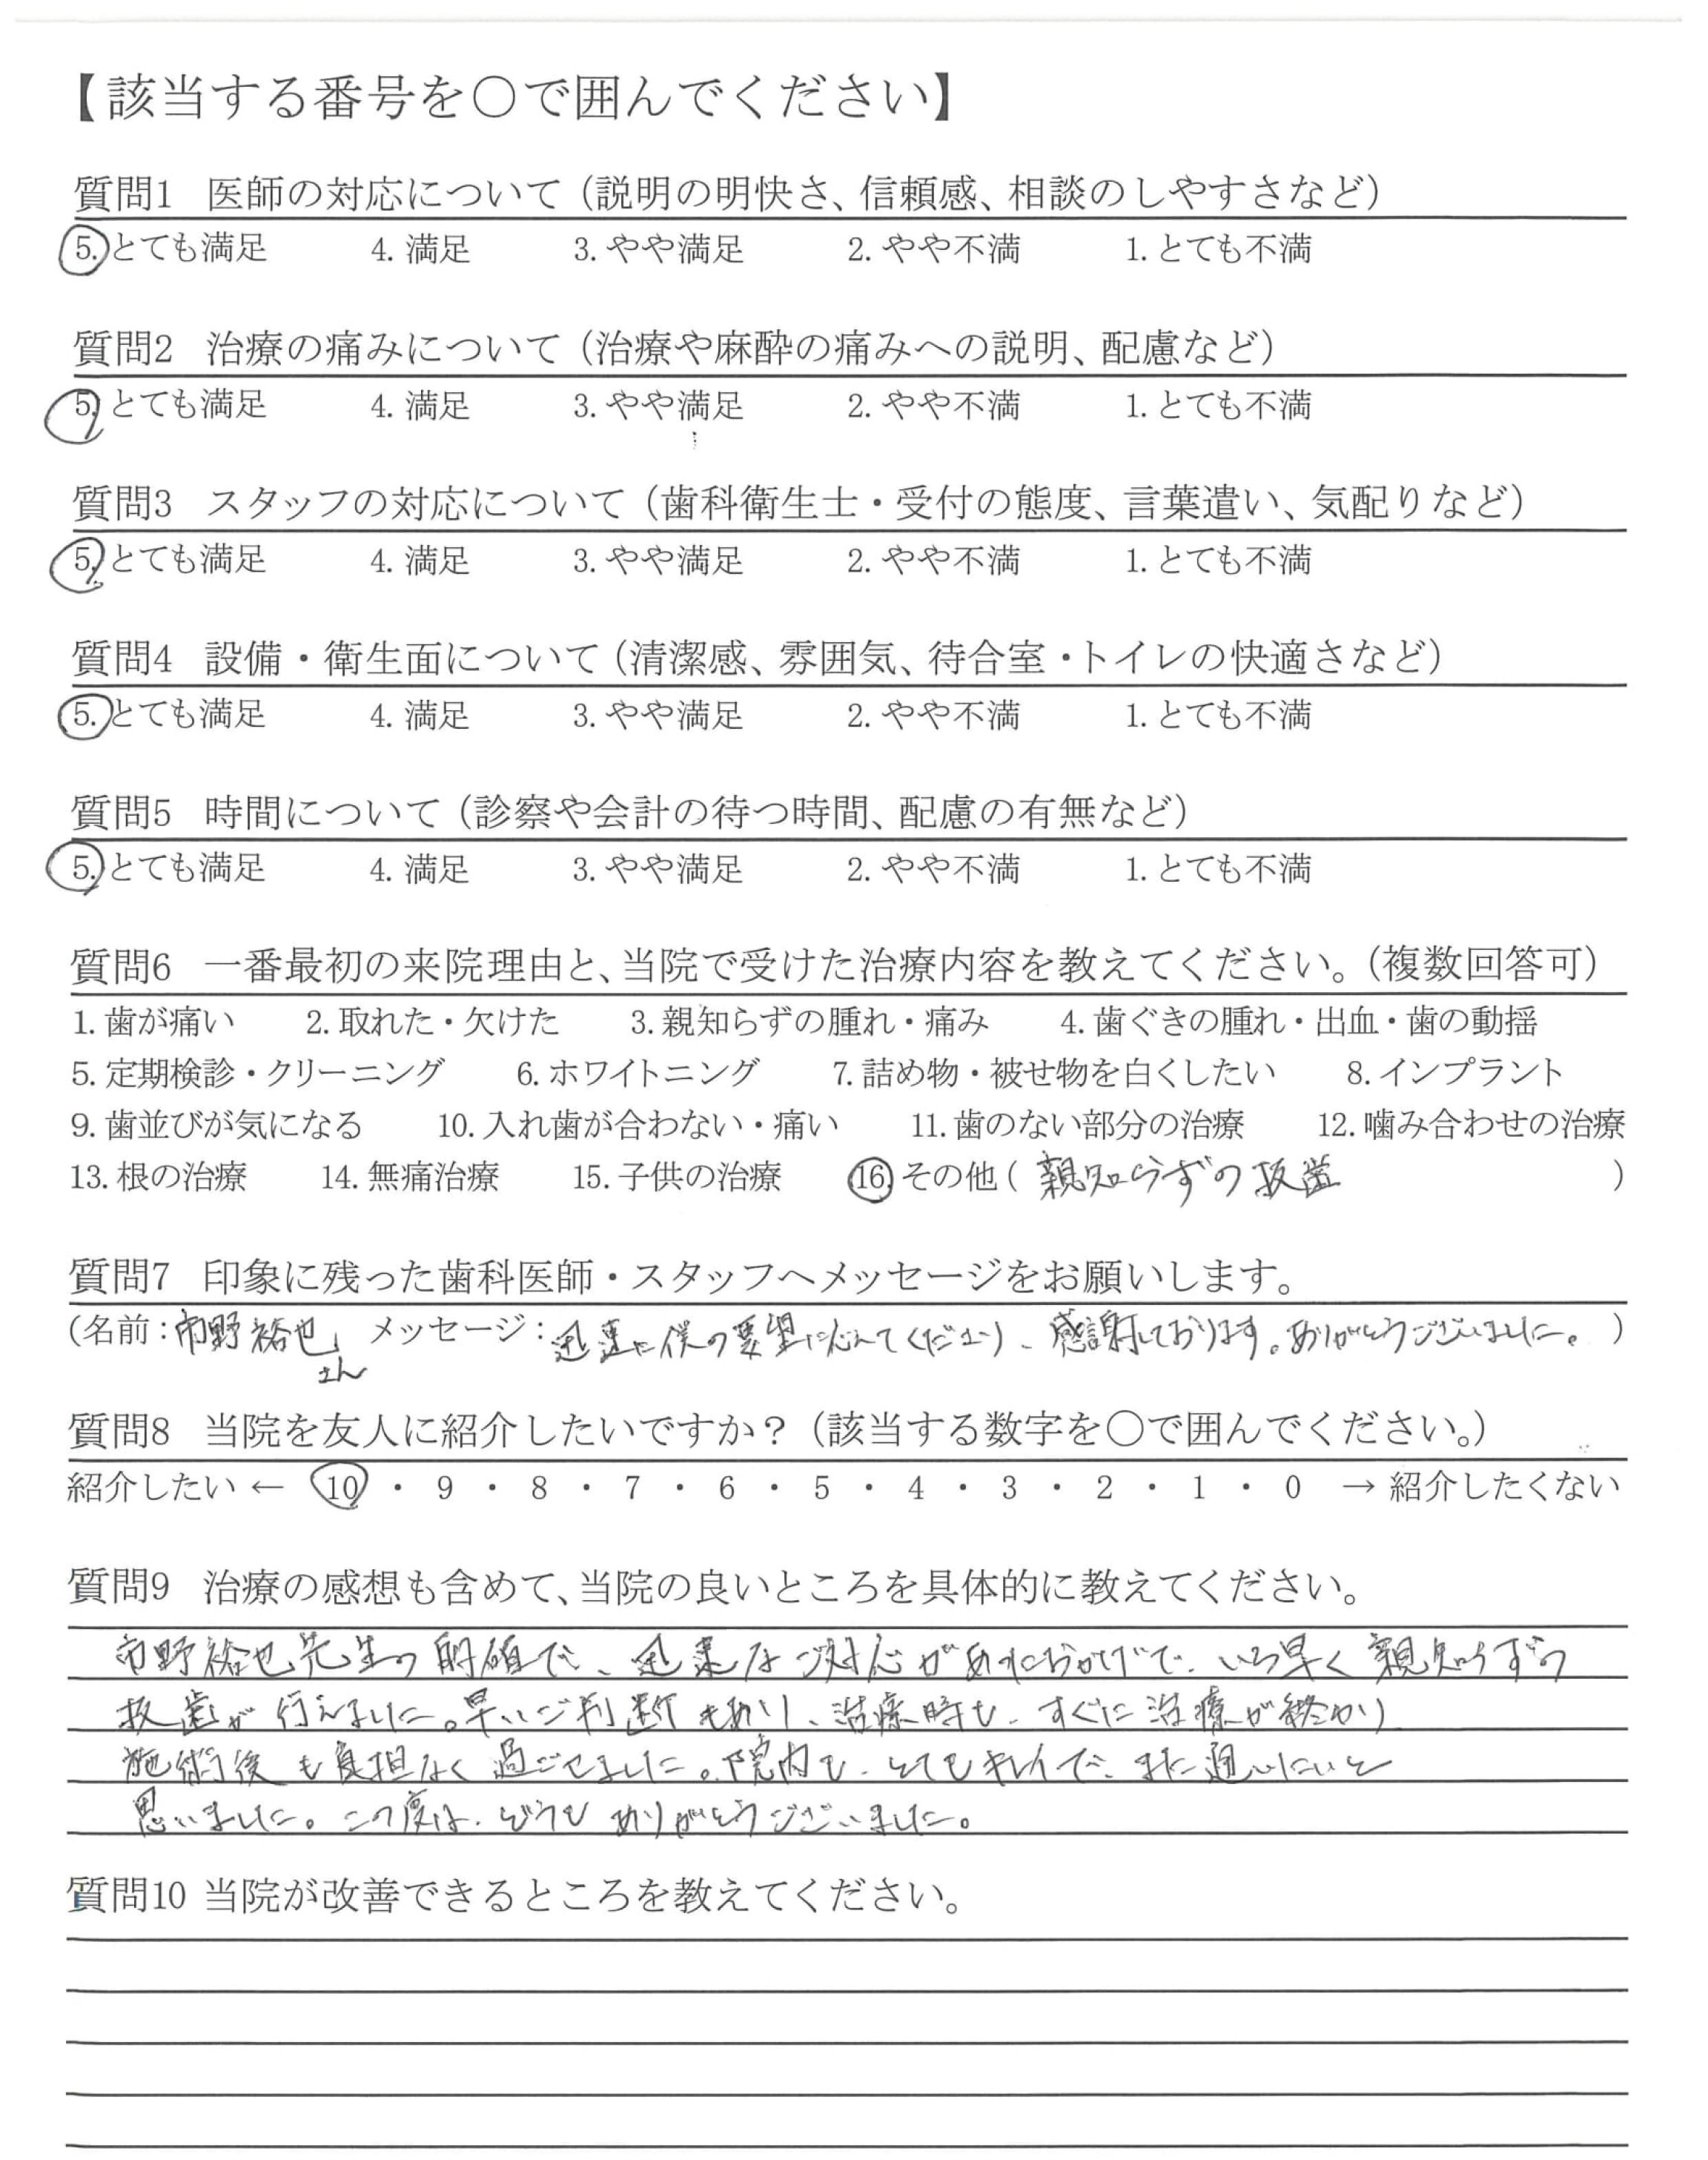 【該当する番号を○で囲んでください】
質問1 医師の対応について（説明の明快さ、信頼感、相談のしやすさなど）
5. とても満足 4. 満足 3. やや満足 2. やや不満 1. とても不満
質問2 治療の痛みについて（治療や麻酔の痛みへの説明、配慮など）
5. とても満足 4. 満足 3. やや満足 2. やや不満 1. とても不満
質問3 スタッフの対応について（歯科衛生士・受付の態度、言葉遣い、気配りなど）
5. とても満足 4. 満足 3. やや満足 2. やや不満 1. とても不満
質問4 設備・衛生面について（清潔感、雰囲気、待合室・トイレの快適さなど）
5. とても満足 4. 満足 3. やや満足 2. やや不満 1. とても不満
質問5 時間について（診察や会計の待つ時間、配慮の有無など）
5. とても満足 4. 満足 3. やや満足 2. やや不満 1. とても不満
質問6 一番最初の来院理由と、当院で受けた治療内容を教えてください。（複数回答可）
1. 歯が痛い 2. 取れた・欠けた 3. 親知らずの腫れ・痛み 4. 歯ぐきの腫れ・出血・歯の動揺
5. 定期検診・クリーニング 6. ホワイトニング 7. 詰め物・被せ物を白くしたい 8. インプラント
9. 歯並びが気になる 10. 入れ歯が合わない・痛い 11. 歯のない部分の治療 12. 噛み合わせの治療
13. 根の治療 14. 無痛治療 15. 子供の治療 16. その他（ 親知らずの抜歯 ）
質問7 印象に残った歯科医師・スタッフへメッセージをお願いします。
（名前：市野裕也さん メッセージ：迅速に僕の要望に応えてくださり、感謝しております。ありがとうございました。）
質問8 当院を友人に紹介したいですか？（該当する数字を○で囲んでください。）
紹介したい ← 10 ・ 9 ・ 8 ・ 7 ・ 6 ・ 5 ・ 4 ・ 3 ・ 2 ・ 1 ・ 0 → 紹介したくない
質問9 治療の感想も含めて、当院の良いところを具体的に教えてください。
市野裕也先生の的確で、迅速なご対応があったおかげで、いち早く親知らずの
抜歯が行えました。早いご判断もあり、治療時も、すぐに治療が終わり
施術後も負担なく過ごせました。院内も、とてもキレイで、また通いたいと
思いました。この度は、どうもありがとうございました。
質問10 当院が改善できるところを教えてください。